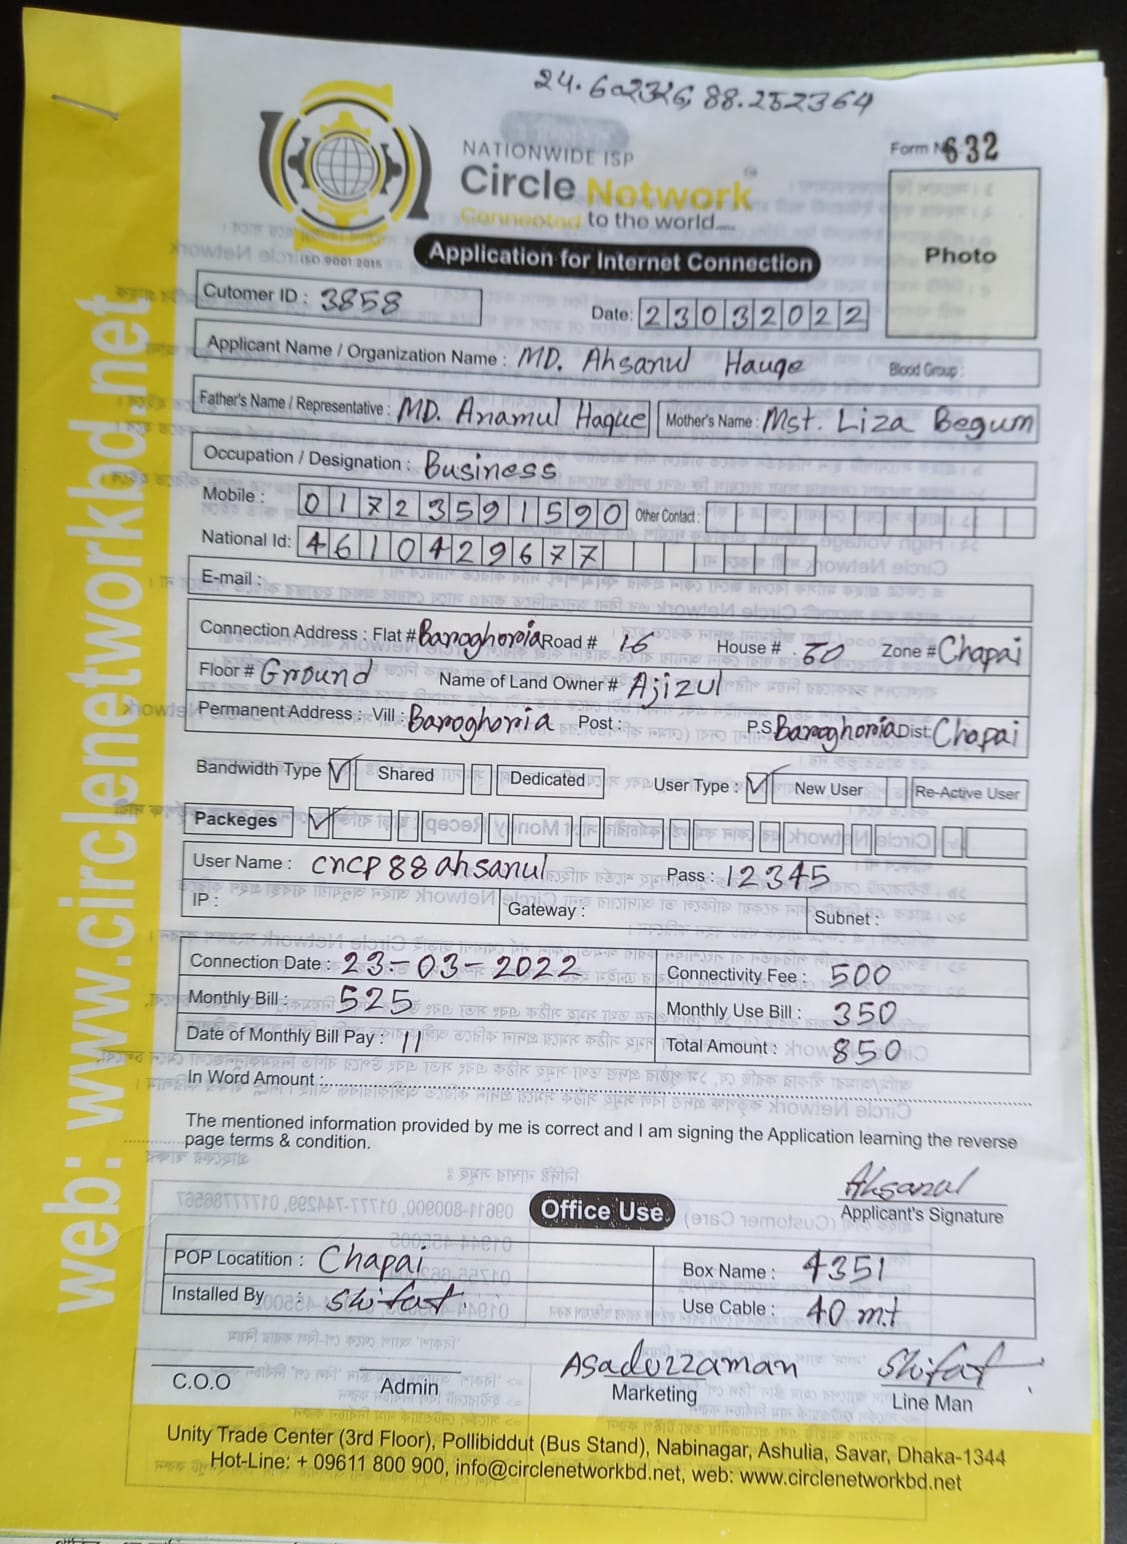 24.602326, 88.252364
NATIONWIDE ISP
Form N 632
Circle Network
Connected to the world.....
ISO 9001 2015
Application for Internet Connection
Photo
Cutomer ID : 3858
Date: 23032022
Applicant Name / Organization Name : MD. Ahsanul Hauqe
Blood Group :
Father's Name / Representative : MD. Anamul Haque Mother's Name : Mst. Liza Begum
Occupation / Designation : Business
Mobile : 01723591590 Other Contact :
National Id: 4610429677
E-mail :
Connection Address : Flat # Baroghoria Road # 16 House # 60 Zone # Chapai
Floor # Ground Name of Land Owner # Ajizul
Permanent Address : Vill : Baroghoria Post : P.S Baroghoria Dist: Chapai
Bandwidth Type Shared Dedicated User Type : New User Re-Active User
Packeges
User Name : cncp88ahsanul Pass : 12345
IP : Gateway : Subnet :
Connection Date : 23-03-2022 Connectivity Fee : 500
Monthly Bill : 525 Monthly Use Bill : 350
Date of Monthly Bill Pay : 11 Total Amount : 850
In Word Amount :
The mentioned information provided by me is correct and I am signing the Application learning the reverse
page terms & condition.
Ahsanul
Applicant's Signature
Office Use.
POP Locatition : Chapai Box Name : 4351
Installed By : Shifat Use Cable : 40 mt
Asaduzzaman Shifat
C.O.O Admin Marketing Line Man
Unity Trade Center (3rd Floor), Pollibiddut (Bus Stand), Nabinagar, Ashulia, Savar, Dhaka-1344
Hot-Line: + 09611 800 900, info@circlenetworkbd.net, web: www.circlenetworkbd.net
web: www.circlenetworkbd.net